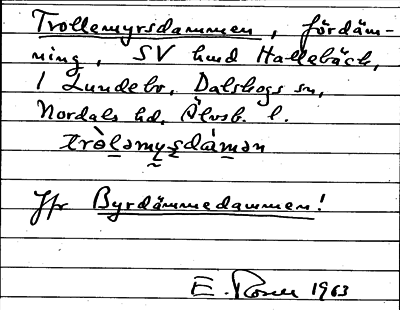 Trollemyrsdammen, fördäm-
ning, SV hmd Hallebäck,
1 Lundebo, Dalskogs sn,
Nordals hd, Älvsb. l.
tròləmysdámən
Jfr Byrdämmedammen!
E. 1963